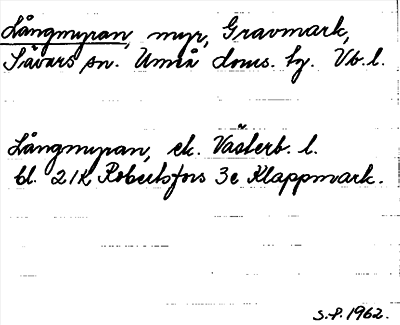 Långmyran, myr, Gravmark,
Sävars sn. Umeå doms. hg. Vb. l.
Långmyran, ek. Västerb. l.
bl. 21K Robertsfors 3e Klappmark.
S.F. 1962.